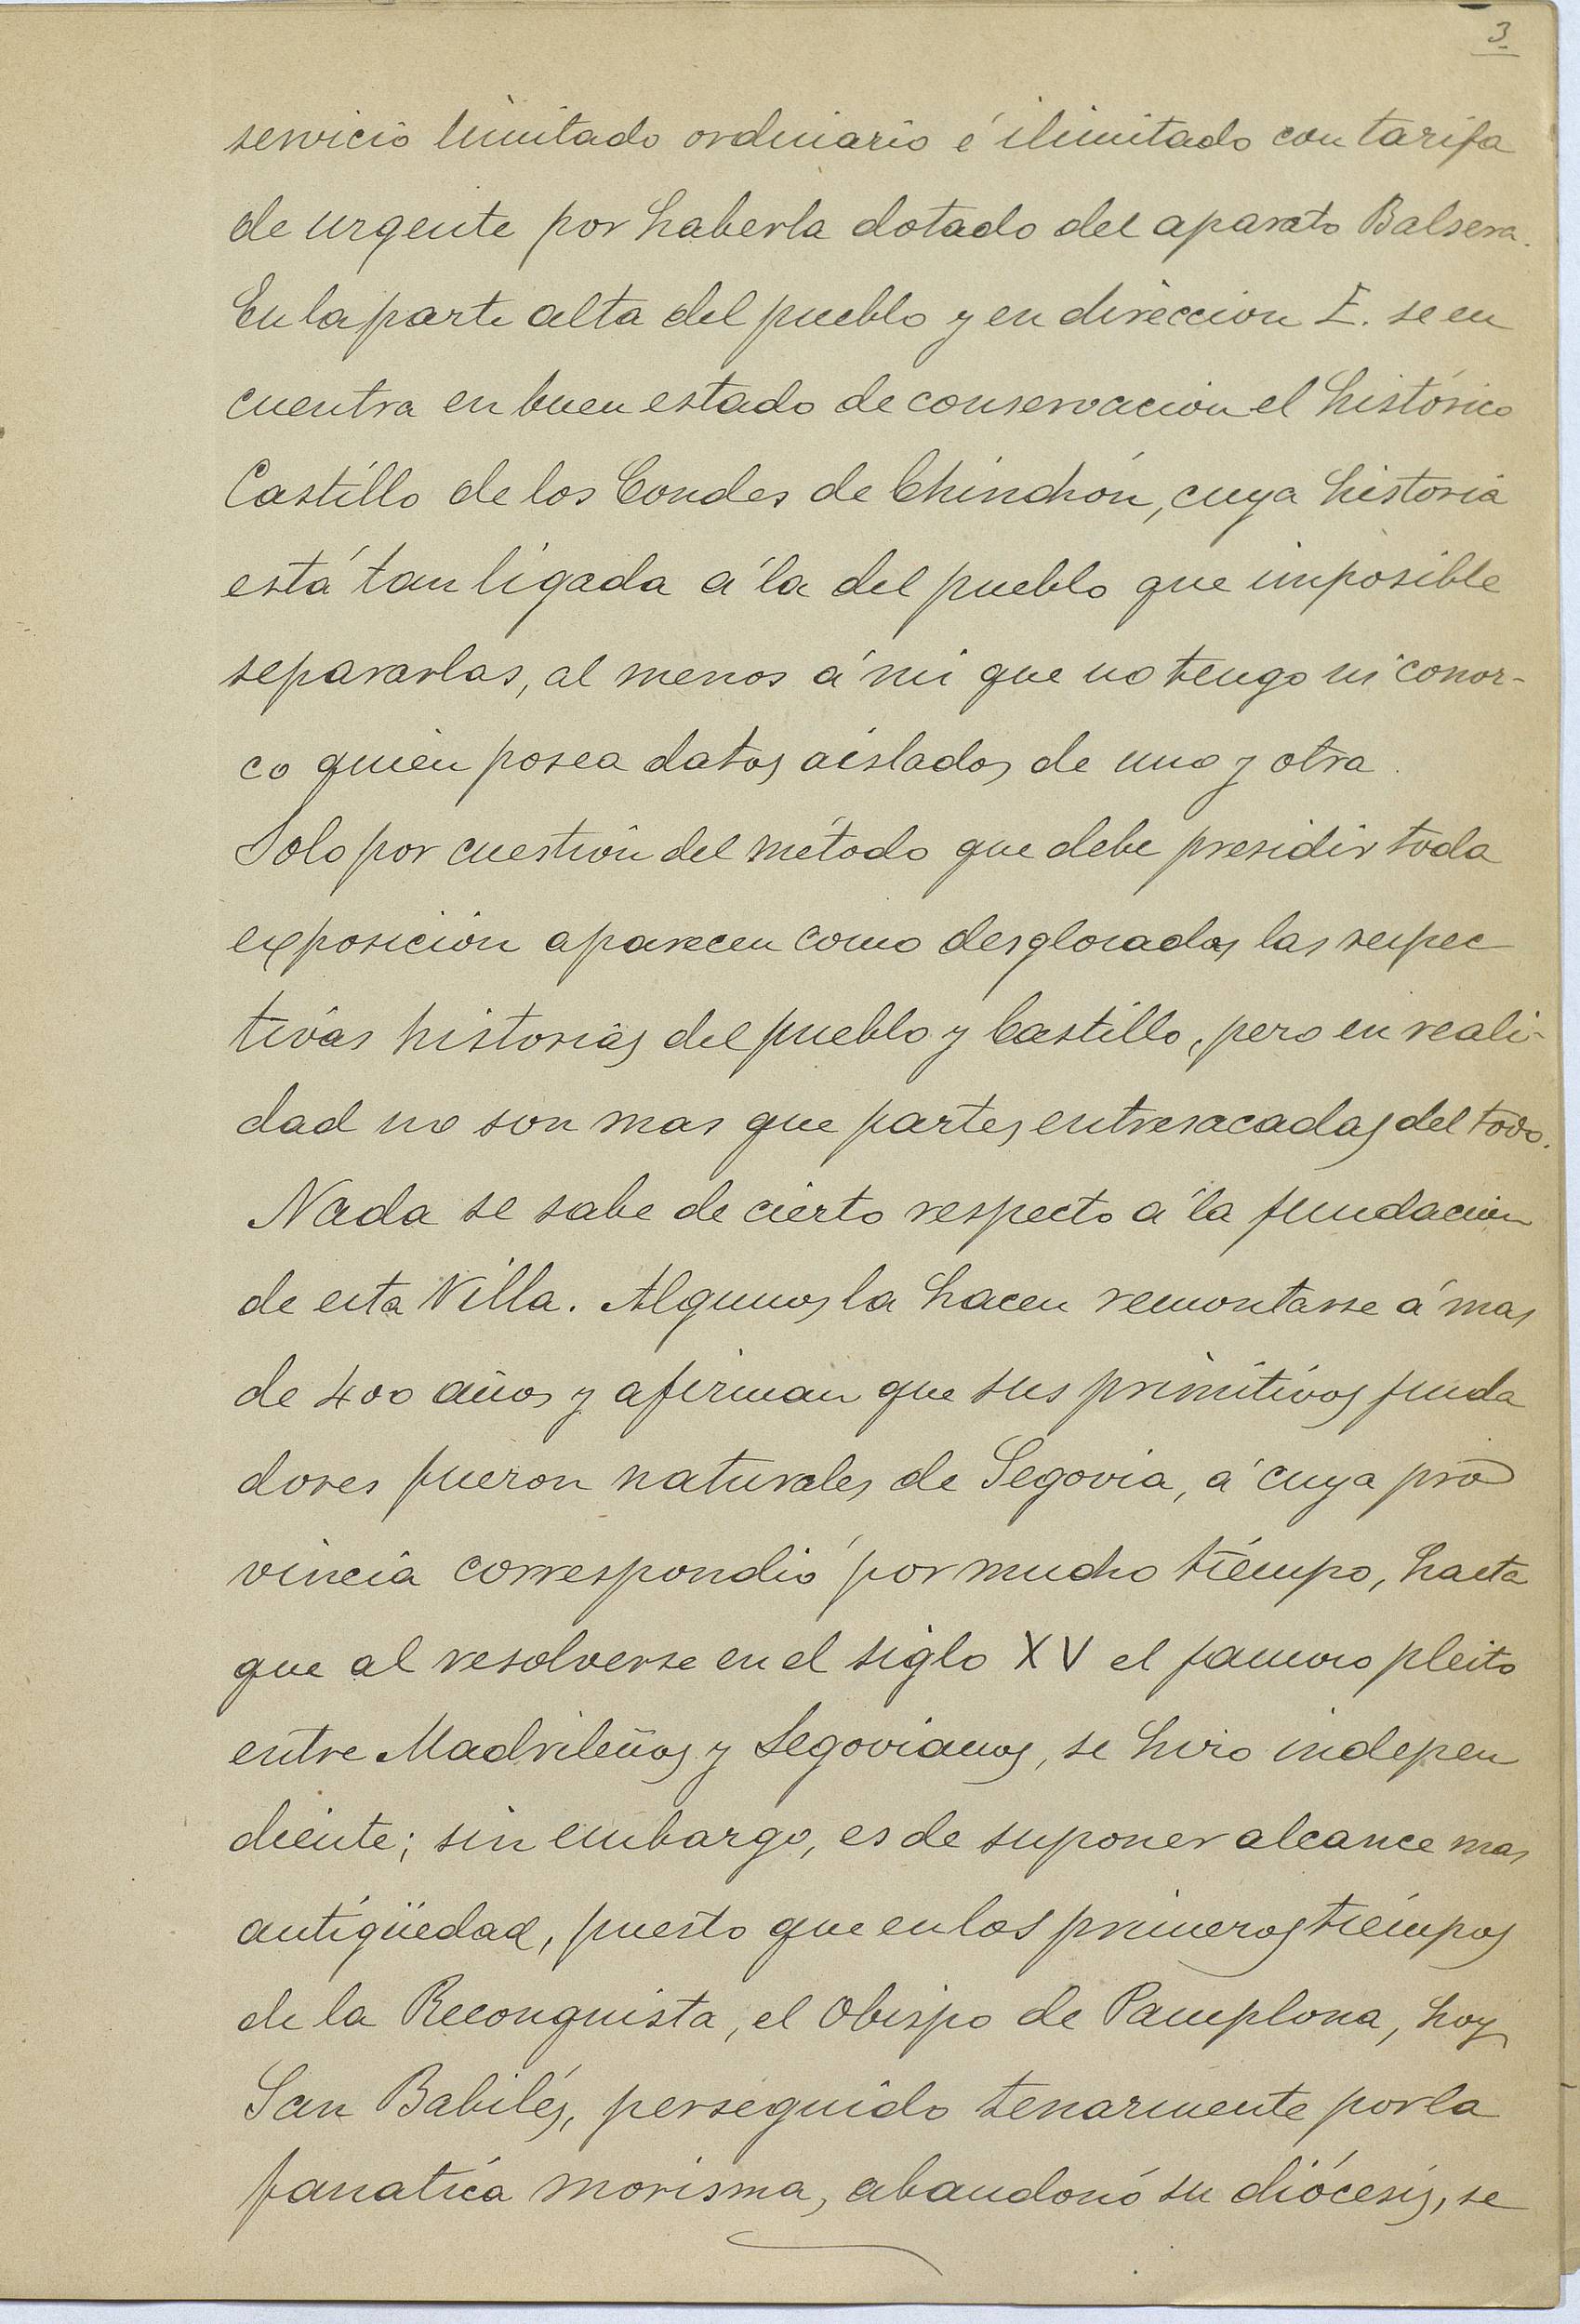 3
servicio limitado ordinario é ilimitado con tarifa
de urgente por haberla dotado del aparato Balsera.
En la parte alta del pueblo y en direccion E. se en
cuentra en buen estado de conservacion el histórico
Castillo de los Condes de Chinchón, cuya historia
está tan ligada á la del pueblo que imposible
separarlas, al menos á mi que no tengo ni conoz-
co quien posea datos aislados de uno y otra.
Solo por cuestión del método que debe presidir toda
exposición aparecen como desglosadas las respec
tivas historias del pueblo y Castillo, pero en reali-
dad no son mas que partes entresacadas del todo.
Nada se sabe de cierto respecto á la fundacion
de esta Villa. Algunos la hacen remontarse á mas
de 400 años y afirman que sus primitivos funda
dores fueron naturales de Segovia, á cuya pro
vincia correspondió por mucho tiempo, hasta
que al resolverse en el siglo XV el famoso pleito
entre Madrileños y Segovianos, se hizo indepen
diente; sin embargo, es de suponer alcance mas
antigüedad, puesto que en los primeros tiempos
de la Reconquista, el Obispo de Pamplona, hoy
San Babilés, perseguido tenazmente por la
fanatica morisma, abandonó su diócesis, se